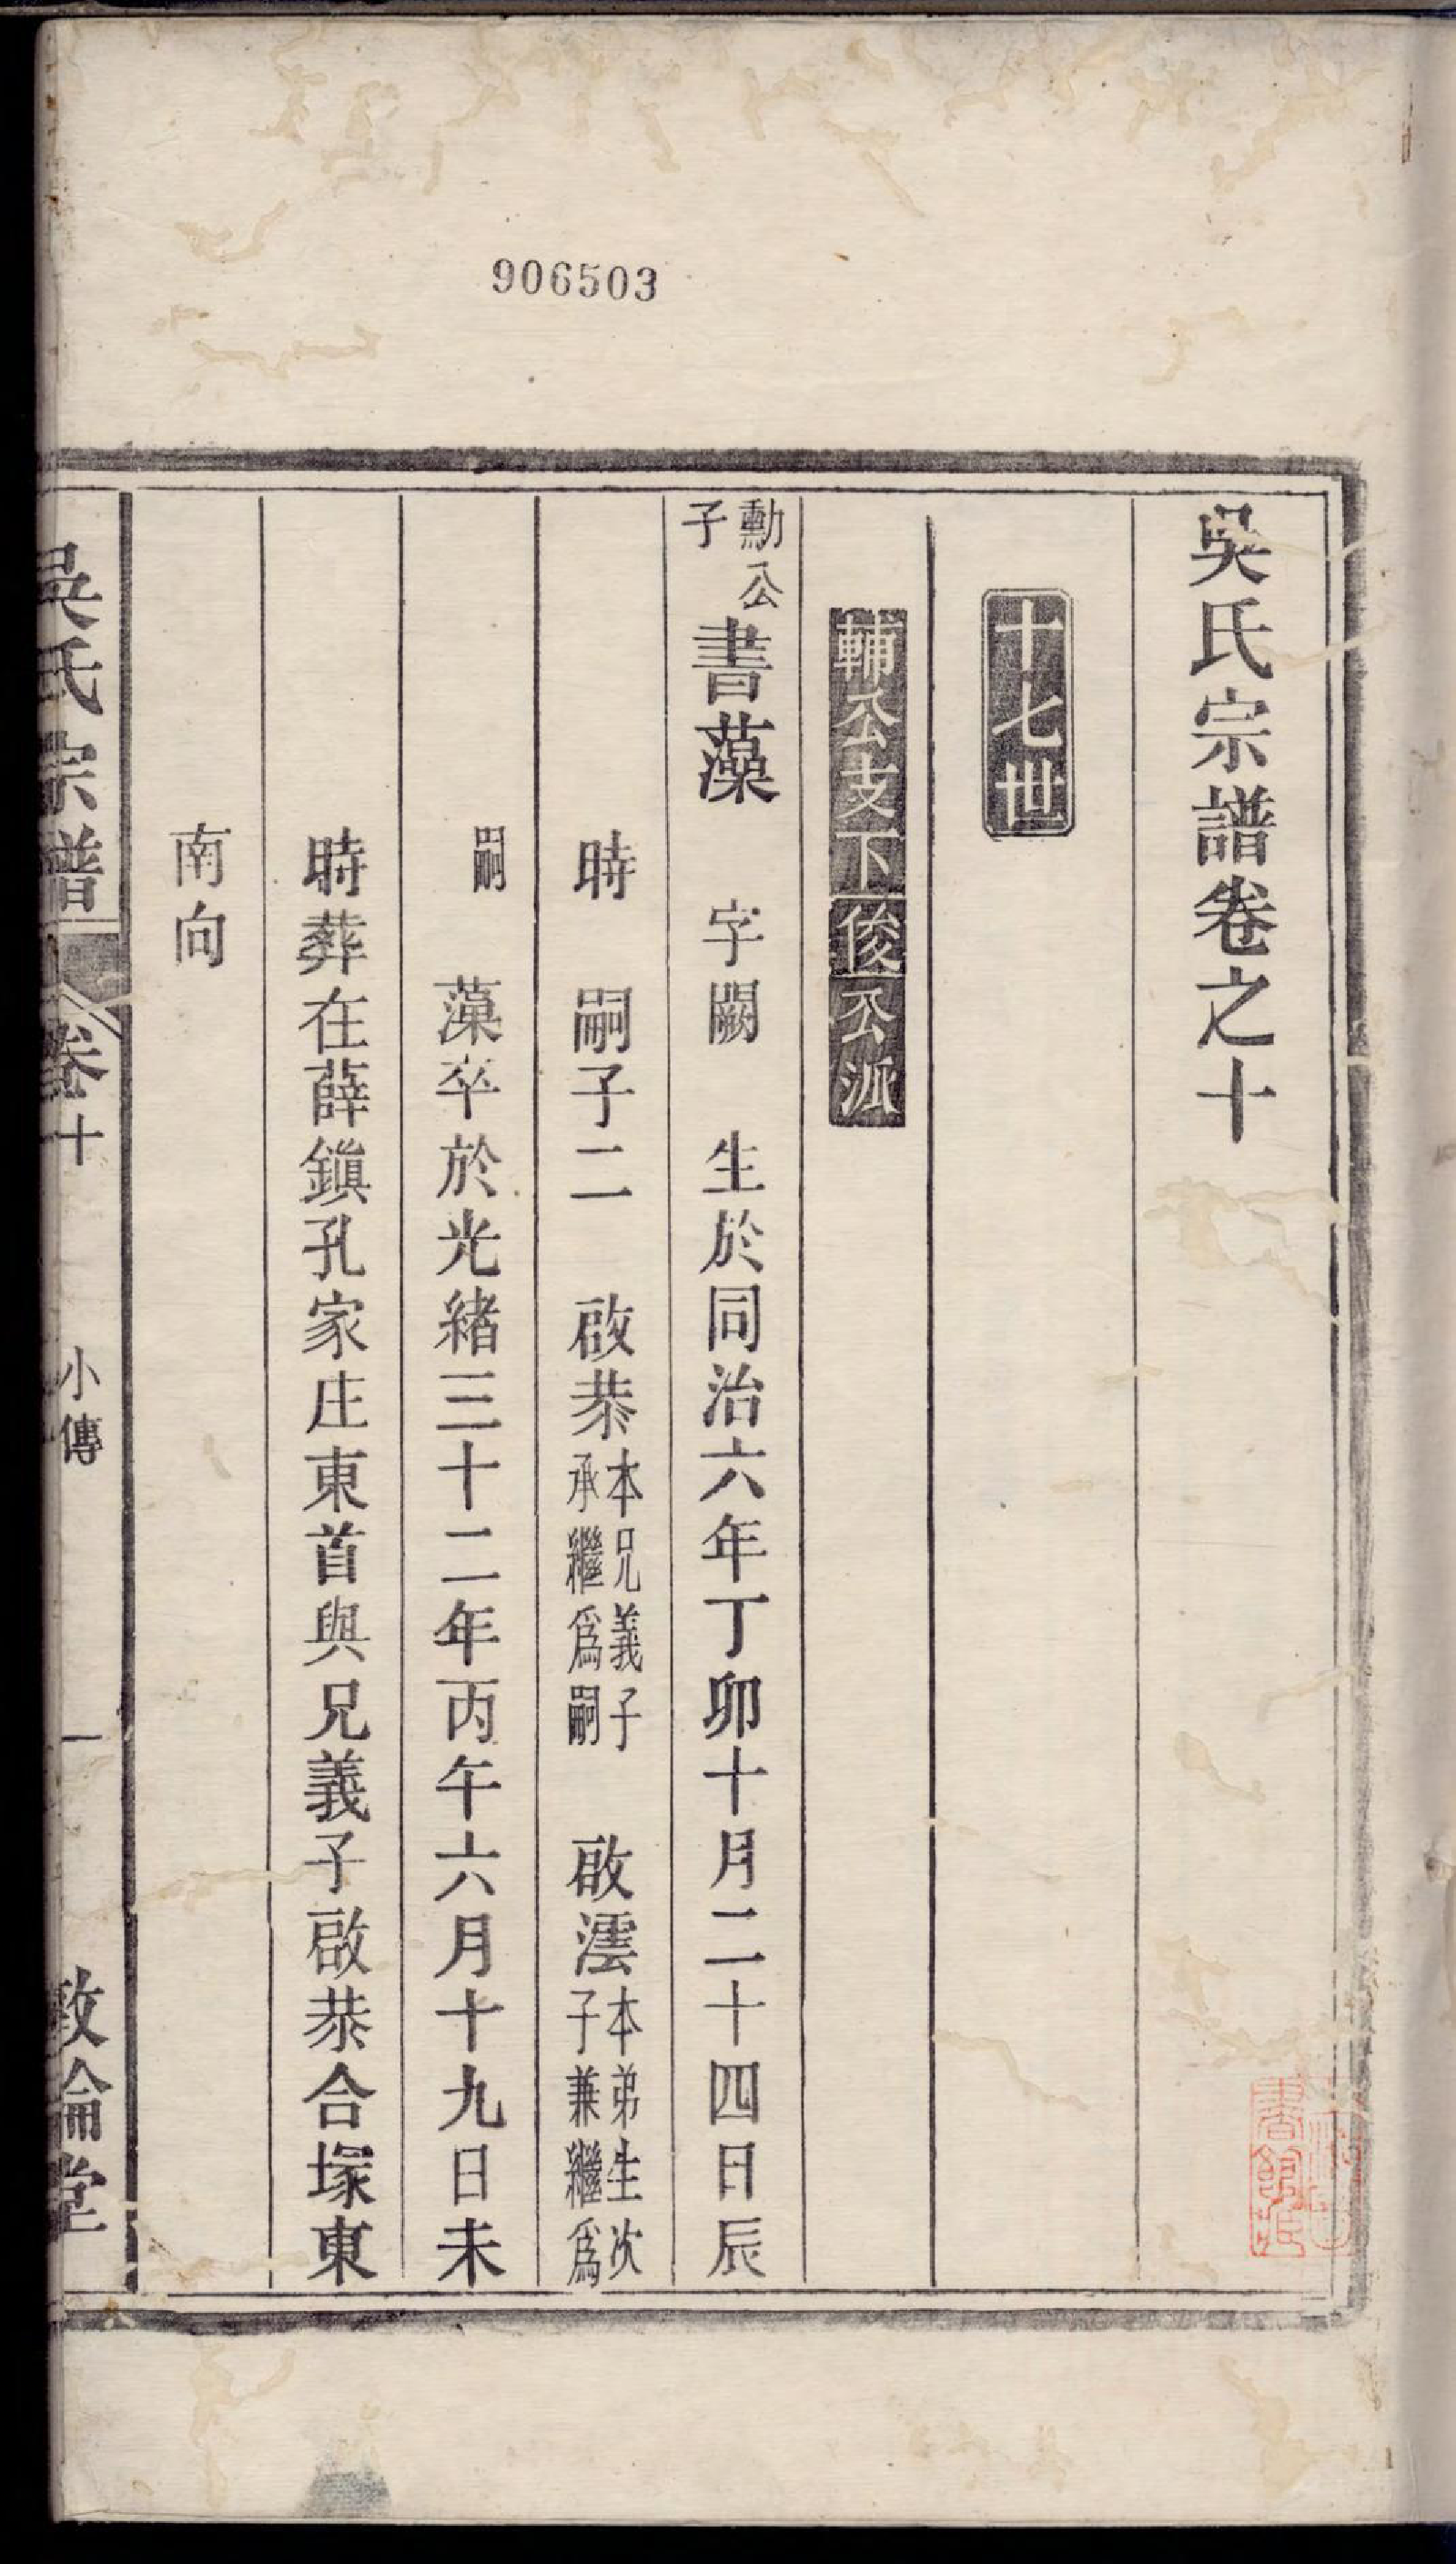 906503
吳氏宗譜卷之十
十七世
輔公支下俊公派
勳公子書藻 字闕 生於同治六年丁卯十月二十四日辰
時 嗣子二 啟恭本兄義子承繼爲嗣 啟澐本弟生次子兼繼爲
嗣 藻卒於光緒三十二年丙午六月十九日未
時葬在薛鎭孔家庄東首與兄義子啟恭合塚東
南向
吳氏宗譜 卷十 小傳 一 敦倫堂